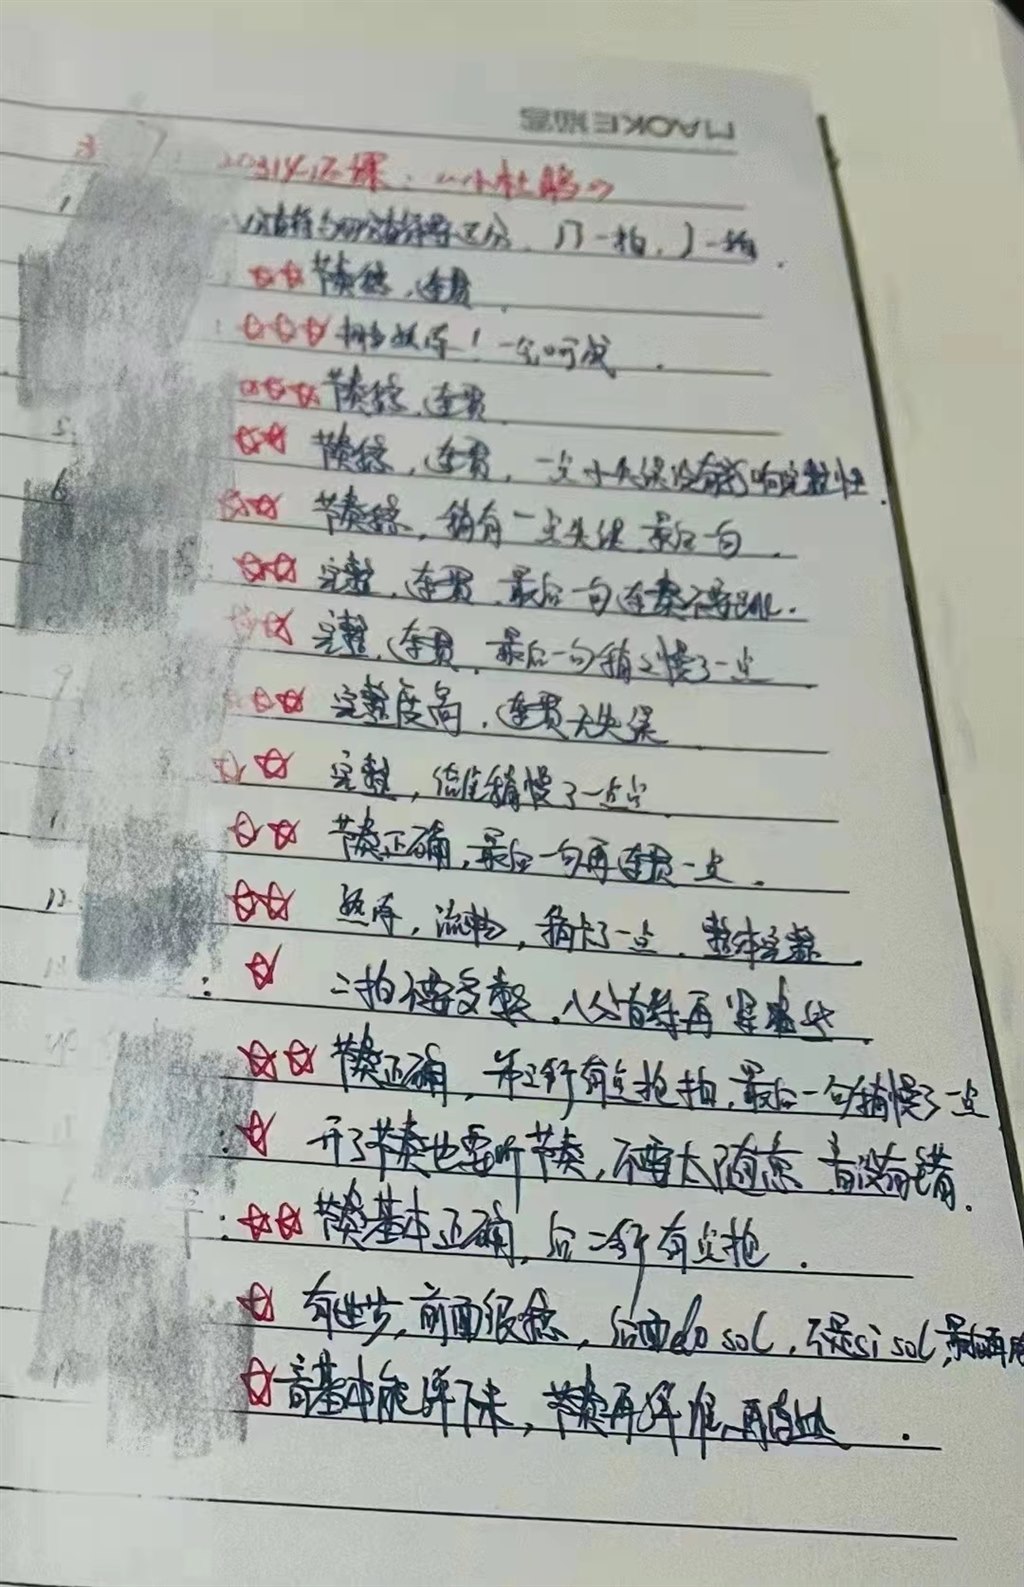 MAOKE
课:《小杜鹃》
八分音符与四分音符要区分,♫一拍,♩一拍.
☆☆ 节奏稳,连贯.
☆☆☆ 相当娴熟!一气呵成.
☆☆☆ 节奏稳,连贯.
5. ☆☆ 节奏稳,连贯,一点小失误没有影响完整性.
6 ☆☆ 节奏稳,稍有一点失误,最后一句.
☆☆ 完整,连贯,最后一句连奏.
☆☆ 完整,连贯,最后一句稍慢了一点
☆☆ 完整度高,连贯无失误
☆☆ 完整,稍慢了一点点
☆☆ 节奏正确,最后一句再连贯一点.
12. ☆☆ 熟练,流畅,稍卡了一点,整体完整.
: ☆ 二拍不要多数,八分音符再紧凑些
☆☆ 节奏正确,第三行有点抢拍,最后一句稍慢了一点
: ☆ 开了节奏也要听节奏,不要太随意 音没有错.
: ☆☆ 节奏基本正确,后二行有点抢.
☆ 有进步,前面很稳,后面do sol,不是si sol,最后再
☆ 音基本能弹下来,节奏再弹准,再自如.